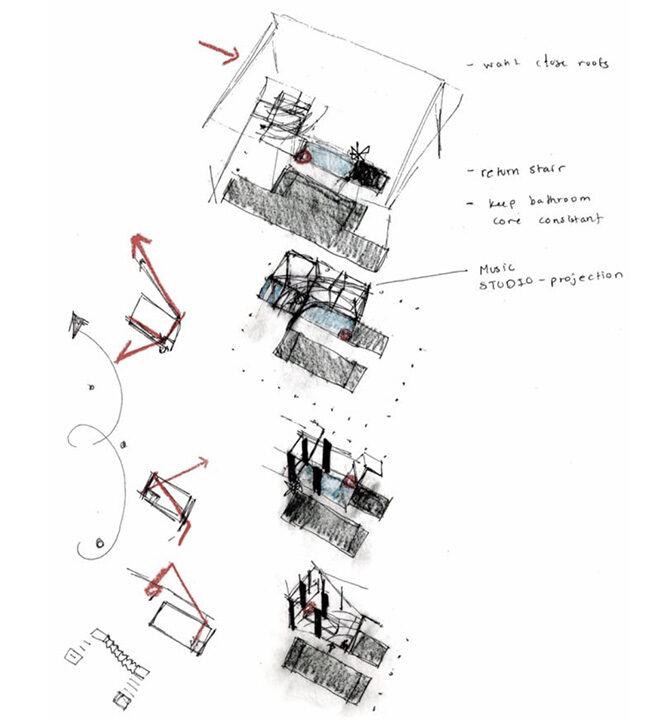 - want close roofs
- return stair
- keep bathroom
core consistant
Music
STUDIO - projection